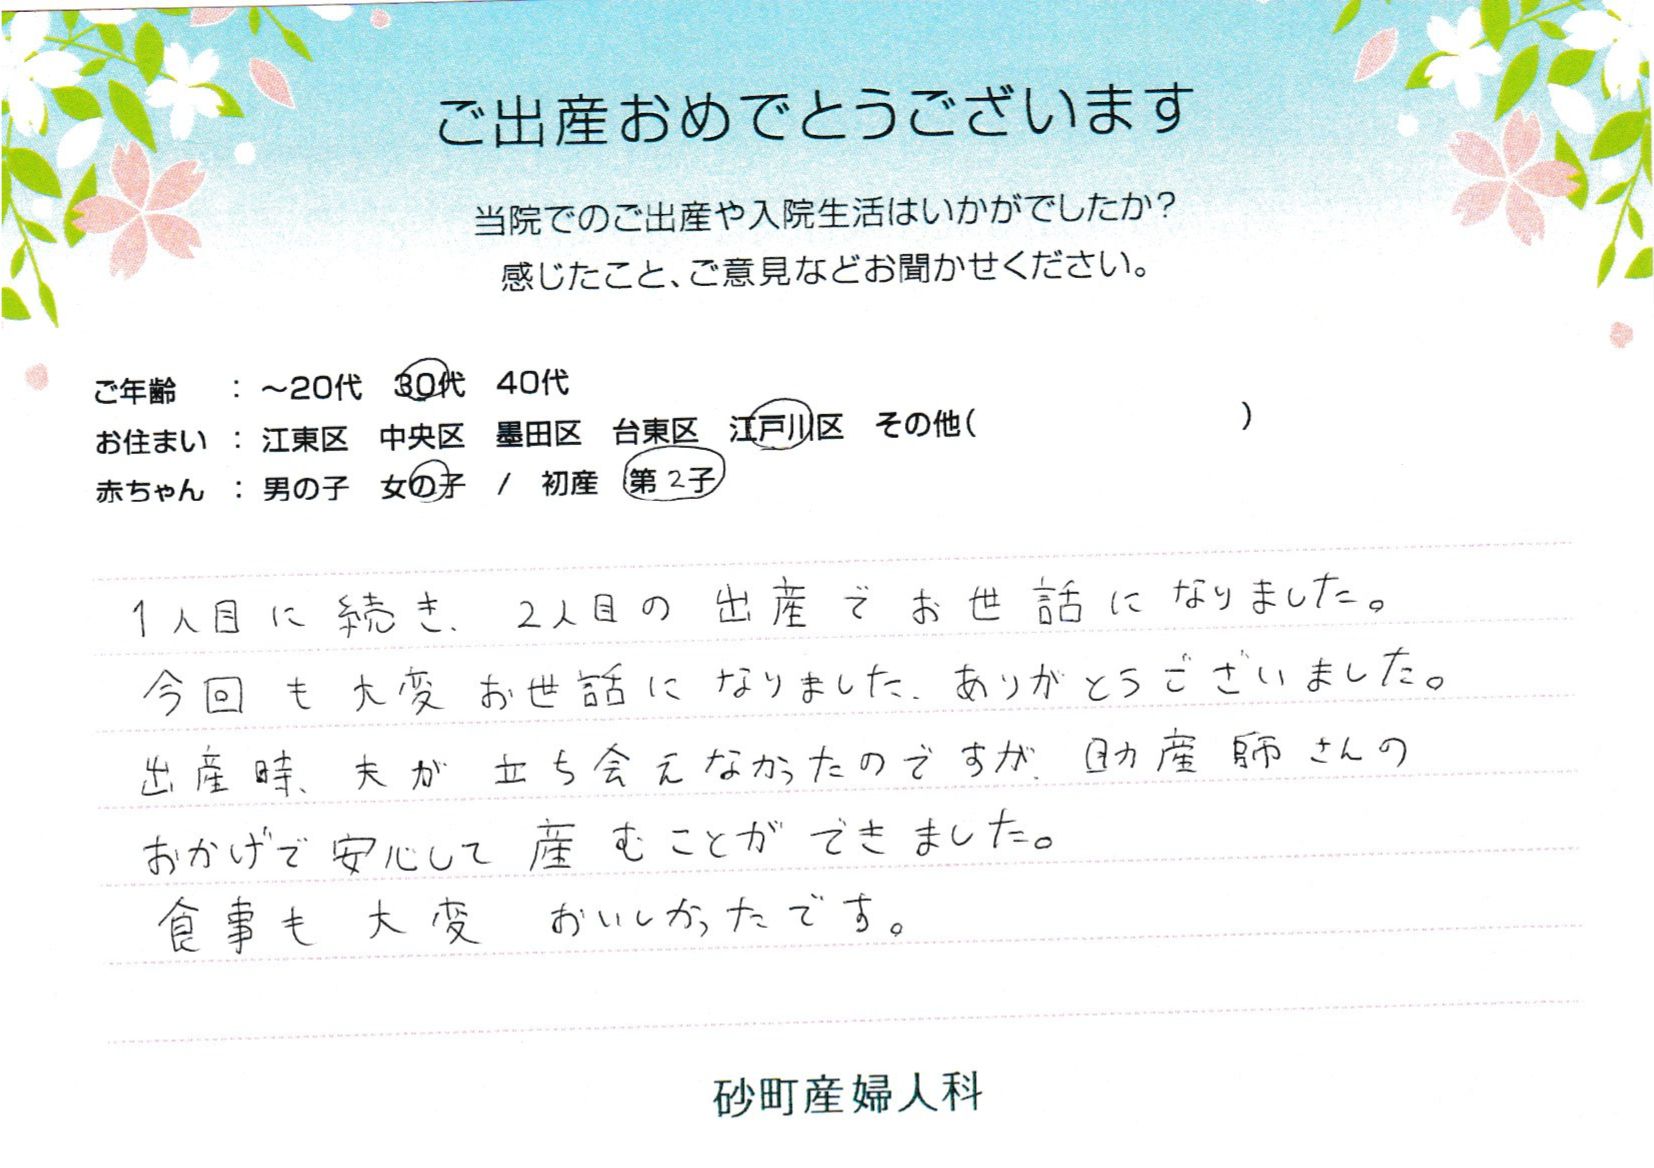 ご出産おめでとうございます
当院でのご出産や入院生活はいかがでしたか?
感じたこと、ご意見などお聞かせください。
ご年齢 : ～20代 30代 40代
お住まい : 江東区 中央区 墨田区 台東区 江戸川区 その他( )
赤ちゃん : 男の子 女の子 / 初産 第2子
1人目に続き、2人目の出産でお世話になりました。
今回も大変お世話になりました、ありがとうございました。
出産時、夫が立ち会えなかったのですが、助産師さんの
おかげで安心して産むことができました。
食事も大変おいしかったです。
砂町産婦人科